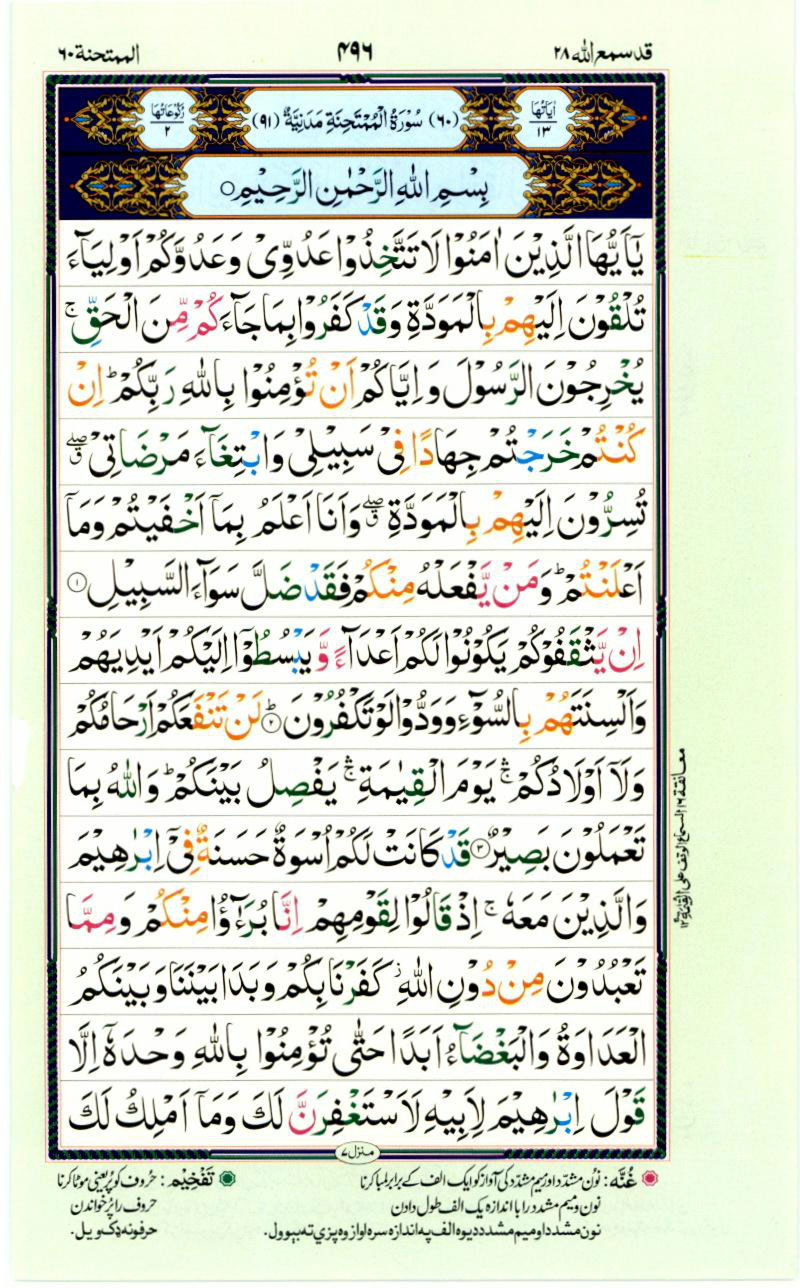 قد سمع الله ٢٨
۴۹۶
الممتحنة ٦٠
اٰیَاتُهَا ١٣
(٦٠) سُوْرَةُ الْمُمْتَحِنَةِ مَدَنِيَّةٌ (٩١)
رُكُوْعَاتُهَا ٢
بِسْمِ اللّٰهِ الرَّحْمٰنِ الرَّحِيْمِ ○
يٰۤاَيُّهَا الَّذِيْنَ اٰمَنُوْا لَا تَتَّخِذُوْا عَدُوِّيْ وَعَدُوَّكُمْ اَوْلِيَآءَ
تُلْقُوْنَ اِلَيْهِمْ بِالْمَوَدَّةِ وَقَدْ كَفَرُوْا بِمَا جَآءَكُمْ مِّنَ الْحَقِّ ۚ
يُخْرِجُوْنَ الرَّسُوْلَ وَاِيَّاكُمْ اَنْ تُؤْمِنُوْا بِاللّٰهِ رَبِّكُمْ ؕ اِنْ
كُنْتُمْ خَرَجْتُمْ جِهَادًا فِيْ سَبِيْلِيْ وَابْتِغَآءَ مَرْضَاتِيْ ۖق
تُسِرُّوْنَ اِلَيْهِمْ بِالْمَوَدَّةِ ۖق وَاَنَا اَعْلَمُ بِمَاۤ اَخْفَيْتُمْ وَمَاۤ
اَعْلَنْتُمْ ؕ وَمَنْ يَّفْعَلْهُ مِنْكُمْ فَقَدْ ضَلَّ سَوَآءَ السَّبِيْلِ ①
اِنْ يَّثْقَفُوْكُمْ يَكُوْنُوْا لَكُمْ اَعْدَآءً وَّيَبْسُطُوْۤا اِلَيْكُمْ اَيْدِيَهُمْ
وَاَلْسِنَتَهُمْ بِالسُّوْٓءِ وَوَدُّوْا لَوْ تَكْفُرُوْنَ ② ؕ لَنْ تَنْفَعَكُمْ اَرْحَامُكُمْ
وَلَاۤ اَوْلَادُكُمْ ۛۚ يَوْمَ الْقِيٰمَةِ ۛۚ يَفْصِلُ بَيْنَكُمْ ؕ وَاللّٰهُ بِمَا
تَعْمَلُوْنَ بَصِيْرٌ ③ قَدْ كَانَتْ لَكُمْ اُسْوَةٌ حَسَنَةٌ فِيْۤ اِبْرٰهِيْمَ
وَالَّذِيْنَ مَعَهٗ ۚ اِذْ قَالُوْا لِقَوْمِهِمْ اِنَّا بُرَءٰٓؤُا مِنْكُمْ وَمِمَّا
تَعْبُدُوْنَ مِنْ دُوْنِ اللّٰهِ ز كَفَرْنَا بِكُمْ وَبَدَا بَيْنَنَا وَبَيْنَكُمُ
الْعَدَاوَةُ وَالْبَغْضَآءُ اَبَدًا حَتّٰى تُؤْمِنُوْا بِاللّٰهِ وَحْدَهٗۤ اِلَّا
قَوْلَ اِبْرٰهِيْمَ لِاَبِيْهِ لَاَسْتَغْفِرَنَّ لَكَ وَمَاۤ اَمْلِكُ لَكَ
منزل ٧
غُنَّه : نون مشدد اور میم مشدد کی آواز کو ایک الف کے برابر لمبا کرنا
نون و میم مشدد را با اندازه یک الف طول دادن
نون مشدد او میم مشدد دیوه الف په اندازه سره اواز وه پزې ته بېوول.
تَفْخِيْم : حروف کو پُر یعنی موٹا کرنا
حروف را پُر خواندن
حرفونه ډک ویل.